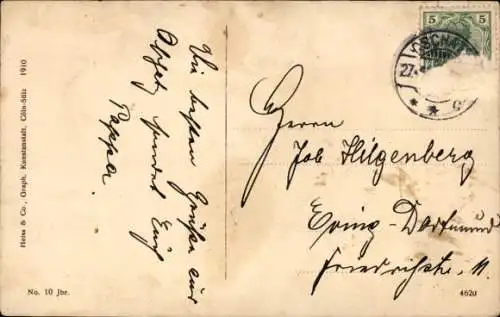 Die besten Grüße aus
Oschatz sendet Euch
Pappa
Heiss & Co., Graph. Kunstanstalt, Cöln-Sülz 1910
No. 10 Jbr.
5 5
OSCHATZ
27.
Herrn
Job Hilgenberg
Eving-Dortmund
Friedrichstr. 11.
4620